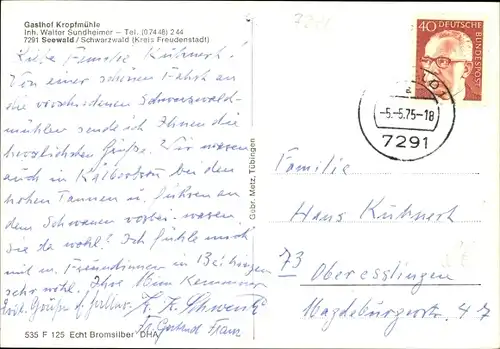 Gasthof Kropfmühle
Inh. Walter Sundheimer – Tel. (07448) 244
7291 Seewald / Schwarzwald (Kreis Freudenstadt)
Liebe Familie Kühnert!
Von einer schönen Fahrt an
die verschiedenen Schwarzwald-
mühlen sende ich Ihnen die
herzlichsten Grüße. Wir waren
auch in Kälberbronn bei den
hohen Tannen u. fuhren an
dem Schwanen vorbei. waren
Sie da wohl? Ich fühle mich
mit m. Freundinnen in
sehr wohl. Ihre
K. Schwenk
Gertrud Franz
535 F 125 Echt Bromsilber DHA
Gebr. Metz, Tübingen
40 DEUTSCHE BUNDESPOST
-5.-5.75-18
7291
Familie
Hans Kühnert
73
Oberesslingen
Magdeburgerstr. 47